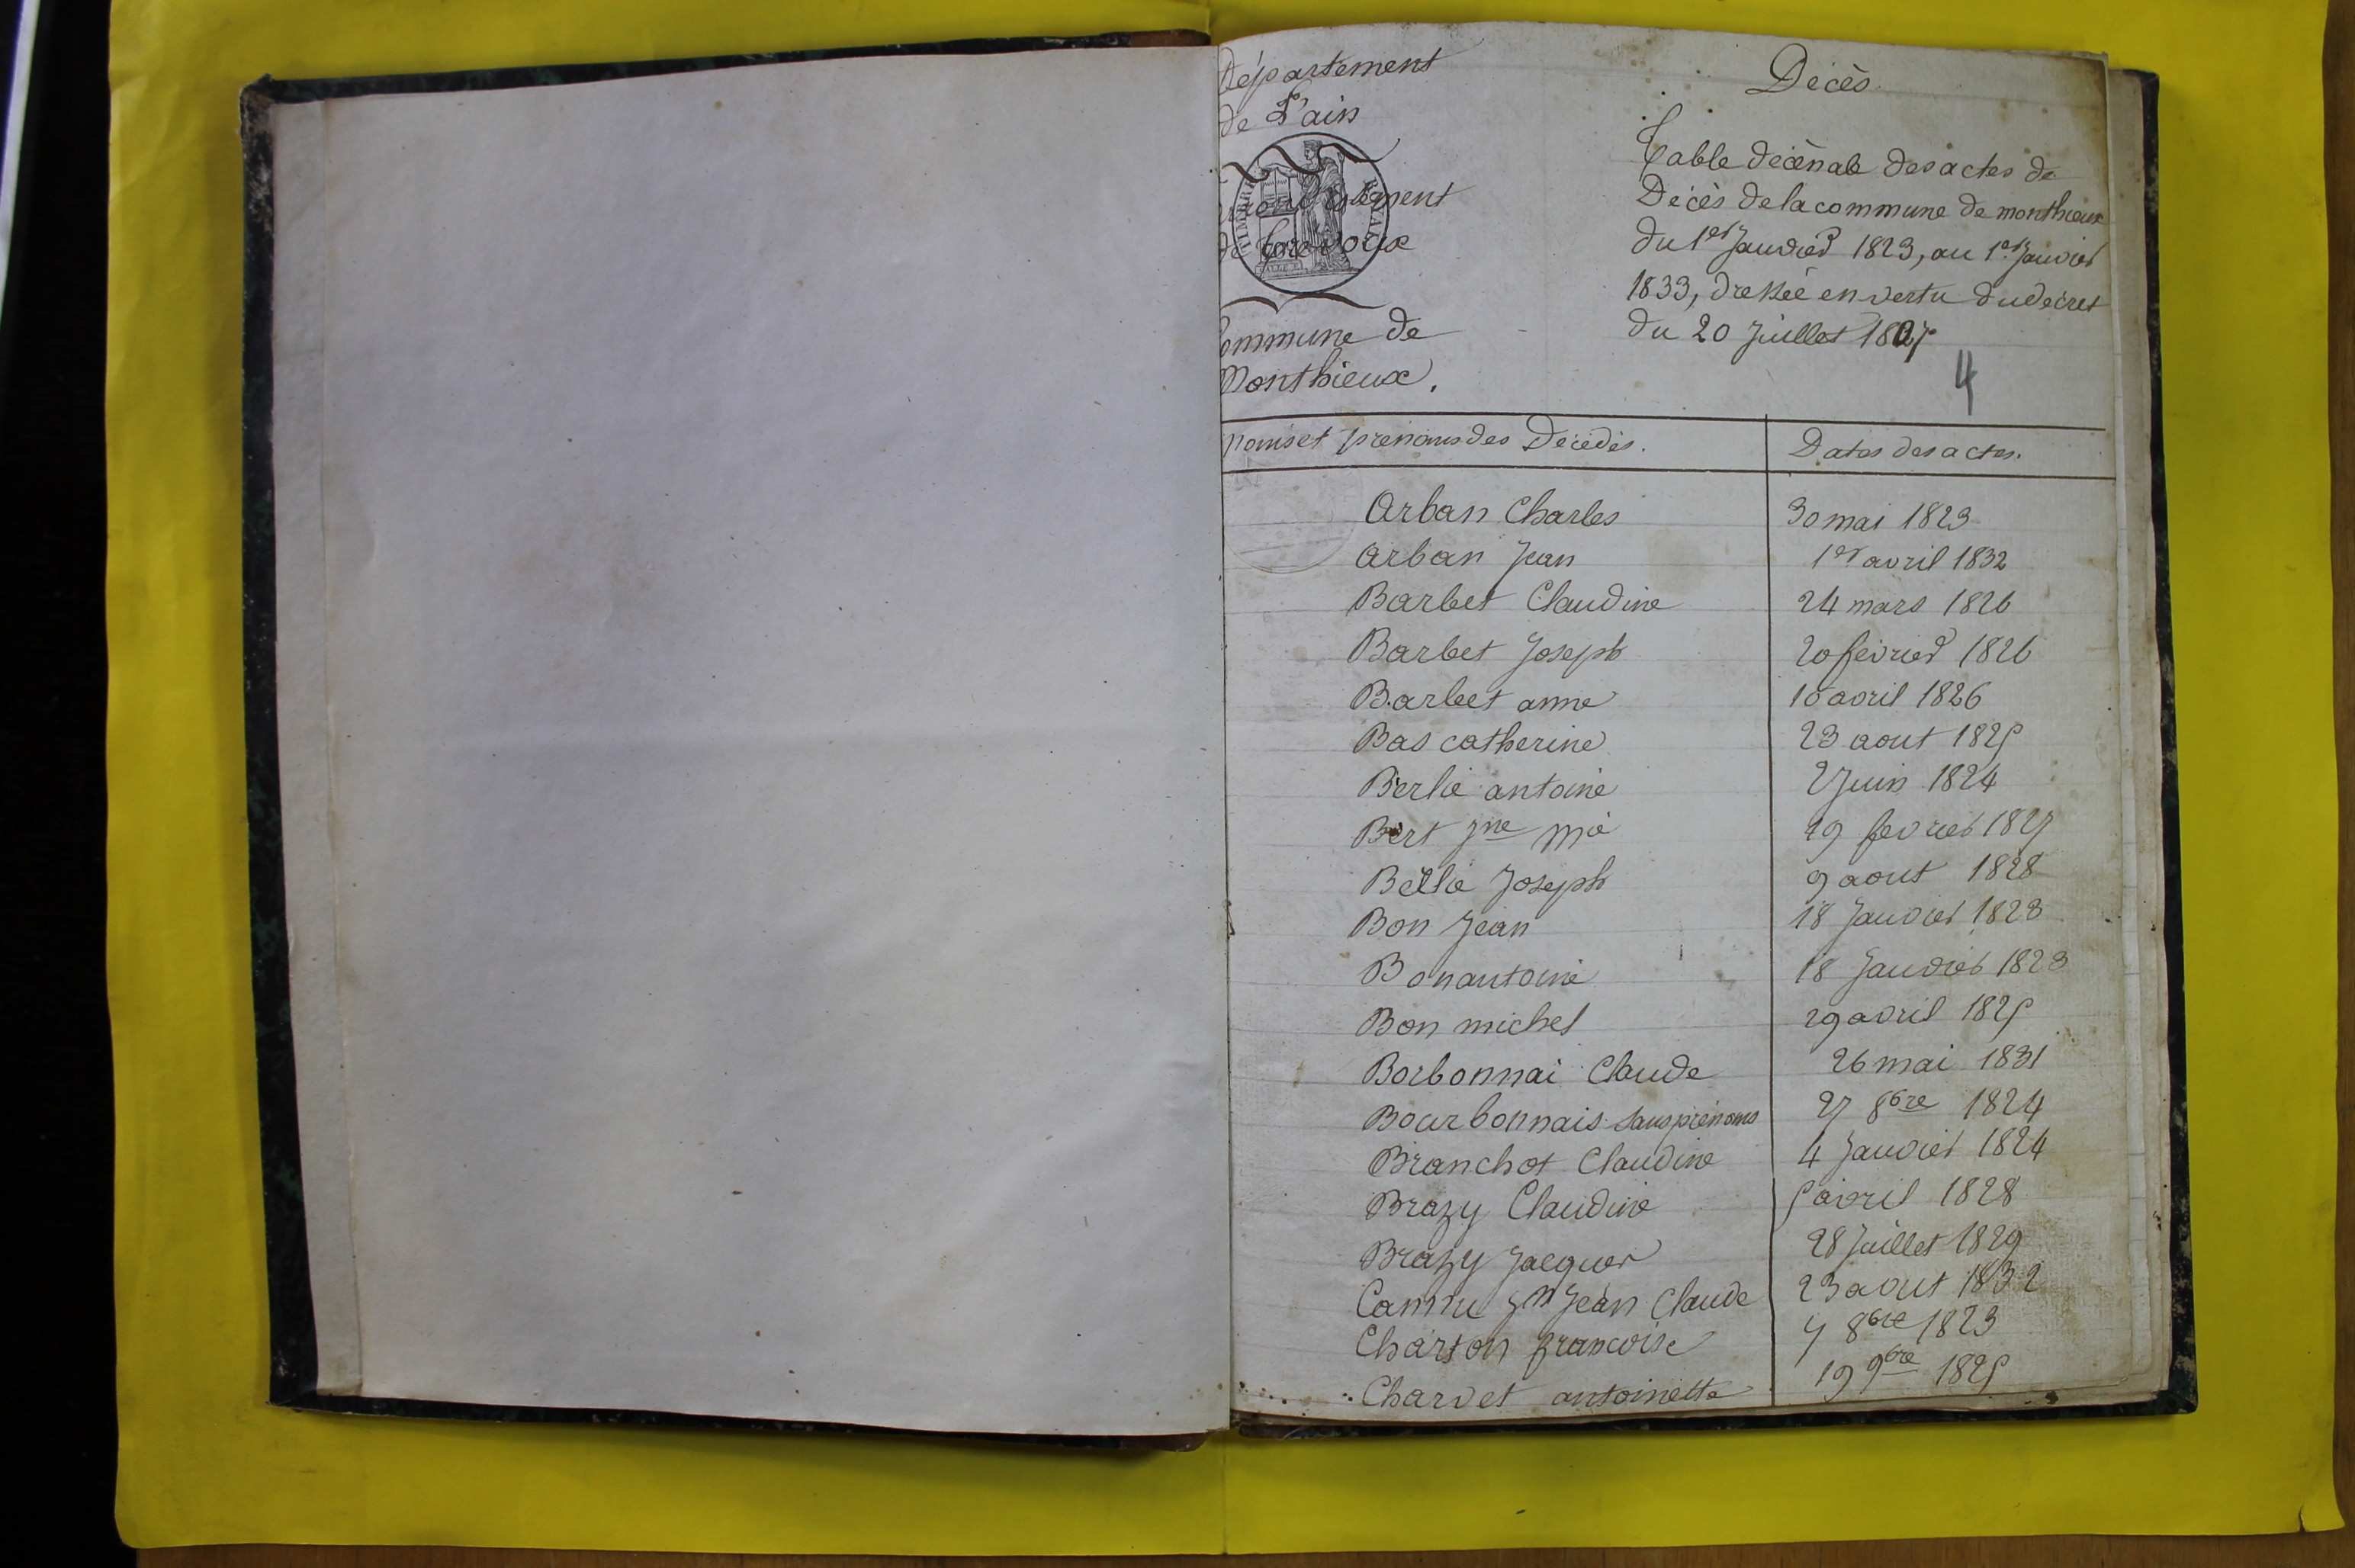 Département
de L'ain
de trevoux
Commune de
Monthieux.
TIMBRE ROYAL
Décès
Table décènale des actes de
Décès de la commune de monthieux
du 1er Janvier 1823, au 1er Janvier
1833, dressée en vertu du décret
du 20 Juillet 1807
4
Noms et prénoms des Décédés. Dates des actes.
Arban Charles 30 mai 1823
Arban Jean 1er avril 1832
Barbet Claudine 24 mars 1826
Barbet Joseph 20 février 1826
Barbet anne 10 avril 1826
Bas catherine 23 aout 1825
Berlié antoine 2 Juin 1824
Bert Jne Mie 19 fevrier 1827
Bellie Joseph 9 aout 1828
Bon Jean 18 Janvier 1823
Bon antoine 18 Janvier 1823
Bon michel 29 avril 1825
Borbonnai Claude 26 mai 1831
Bourbonnais sans prénoms 27 8bre 1824
Branchot Claudine 4 Janvier 1824
Brazy Claudine 5 avril 1828
Brazy Jacques 28 Juillet 1829
Jean Claude 23 aout 1832
Charton francoise 7 8bre 1823
Charvet antoinette 19 9bre 1825